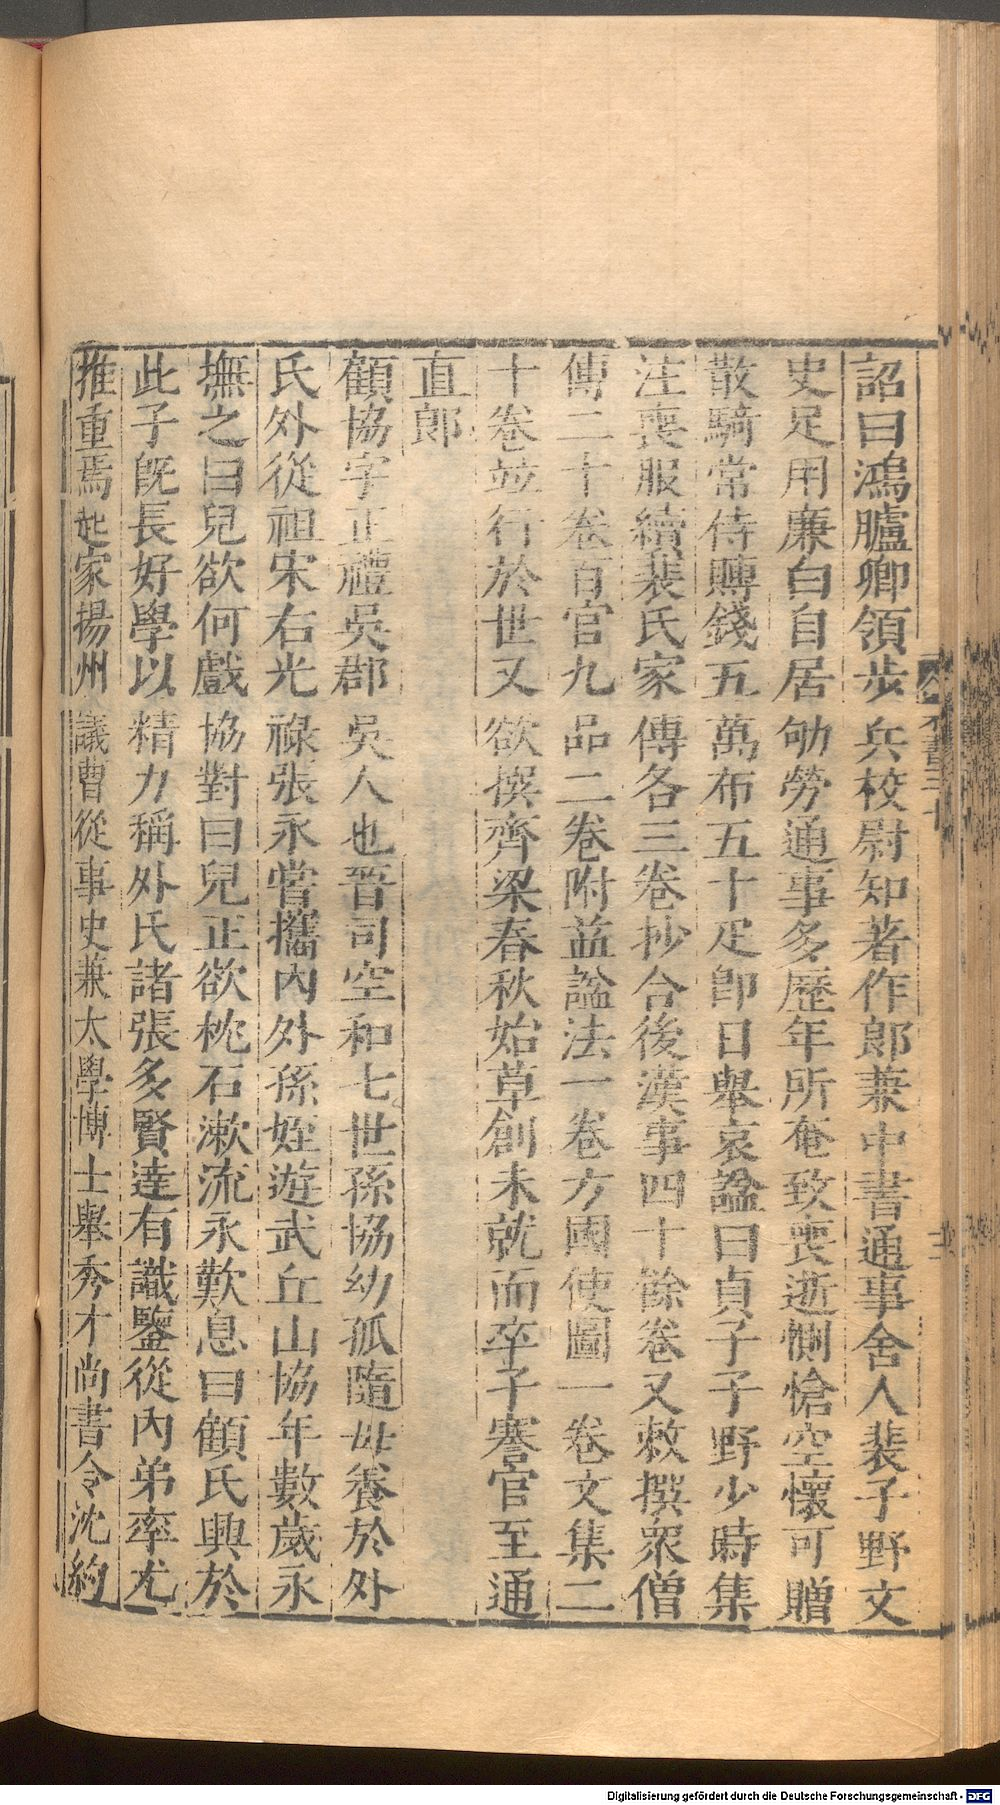 詔曰鴻臚卿領步兵校尉知著作郎兼中書通事舍人裴子野文
史足用廉白自居劬勞通事多歷年所奄致喪逝惻愴空懷可贈
散騎常侍賻錢五萬布五十疋卽日舉哀諡曰貞子子野少時集
注喪服續裴氏家傳各三卷抄合後漢事四十餘卷又敕撰衆僧
傳二十卷百官九品二卷附益諡法一卷方國使圖一卷文集二
十卷並行於世又欲撰齊梁春秋始草創未就而卒子謇官至通
直郎
顧協字正禮吳郡吳人也晉司空和七世孫協幼孤隨母養於外
氏外從祖宋右光祿張永嘗攜內外孫姪遊武丘山協年數歲永
撫之曰兒欲何戲協對曰兒正欲枕石漱流永歎息曰顧氏興於
此子旣長好學以精力稱外氏諸張多賢達有識鑒從內弟率尤
推重焉起家揚州議曹從事史兼太學博士舉秀才尚書令沈約
Digitalisierung gefördert durch die Deutsche Forschungsgemeinschaft - DFG